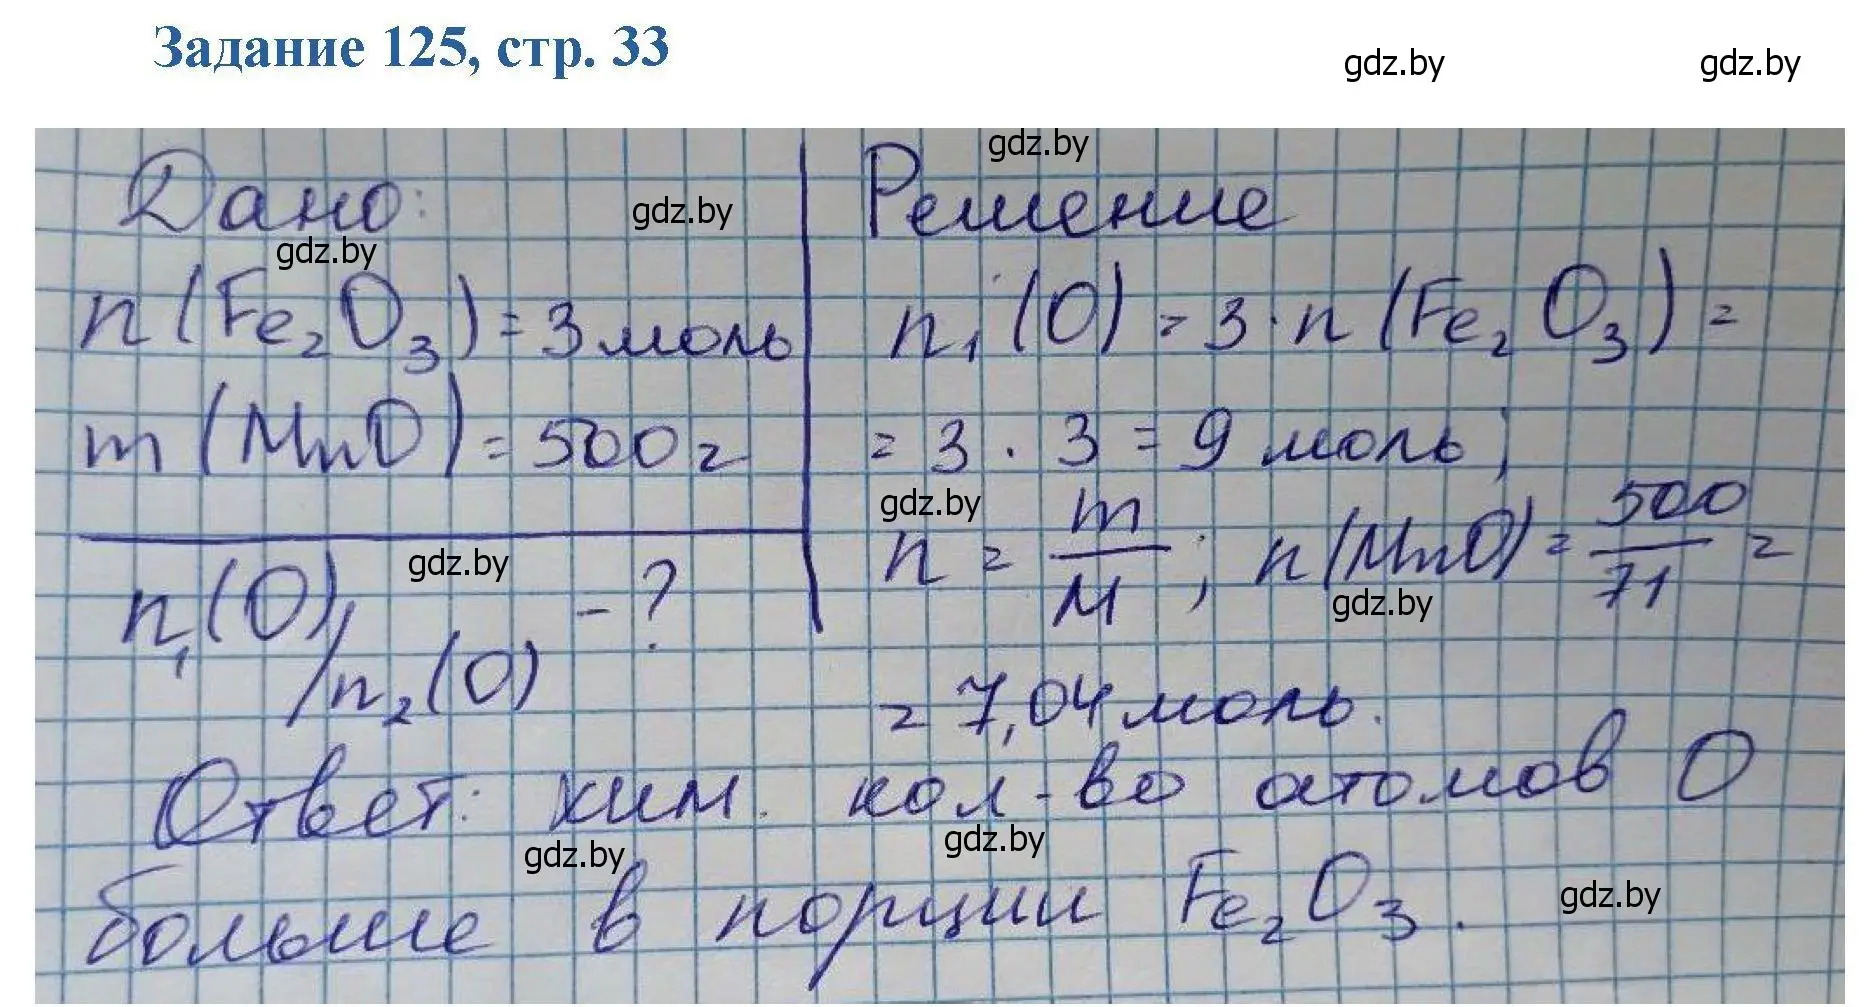 Задание 125, стр. 33
gdz.by
gdz.by
gdz.by
Дано:
gdz.by
gdz.by
n(Fe₂O₃) = 3 моль
m(MnO) = 500 г
gdz.by
n₁(O)/n₂(O) - ?
Решение
n₁(O) = 3 · n(Fe₂O₃) =
= 3 · 3 = 9 моль;
gdz.by
n = m/M; n(MnO) = 500/71 =
gdz.by
= 7,04 моль.
Ответ: хим. кол-во атомов O
gdz.by
gdz.by
больше в порции Fe₂O₃.
gdz.by